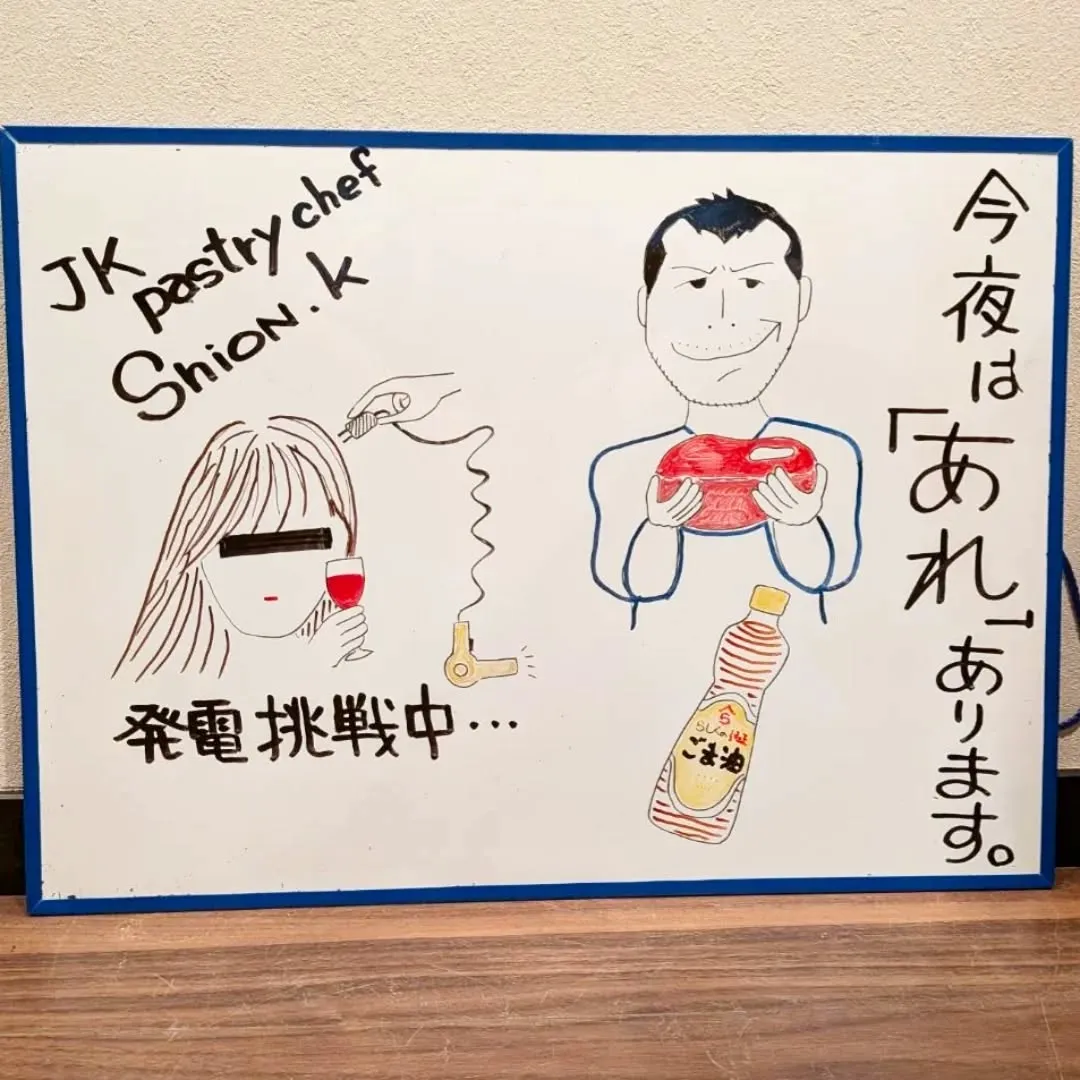 JK
pastry chef
Shion.k
発電挑戦中…
今夜は
「あれ」あります。
ら
ごま油